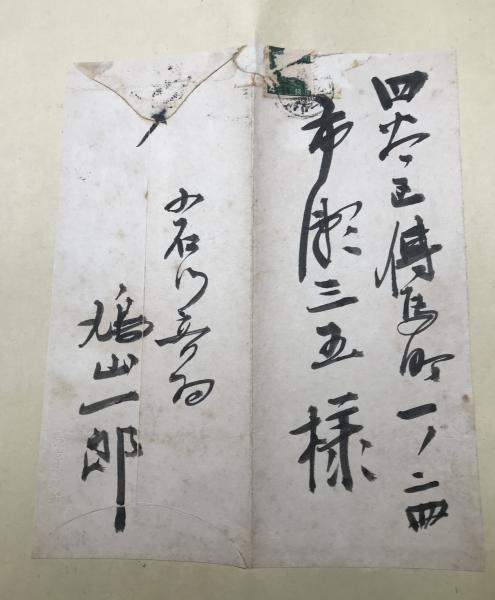 四谷区傳馬町一ノ二四
市瀬三五様
小石川音羽
鳩山一郎